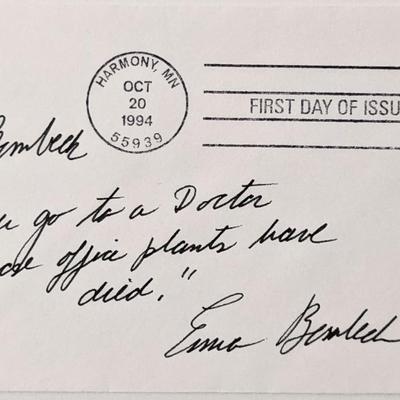 HARMONY, MN
OCT
20
1994
55939
FIRST DAY OF ISSU
Bombeck
go to a Doctor
office plants have
died."
Erma Bombeck